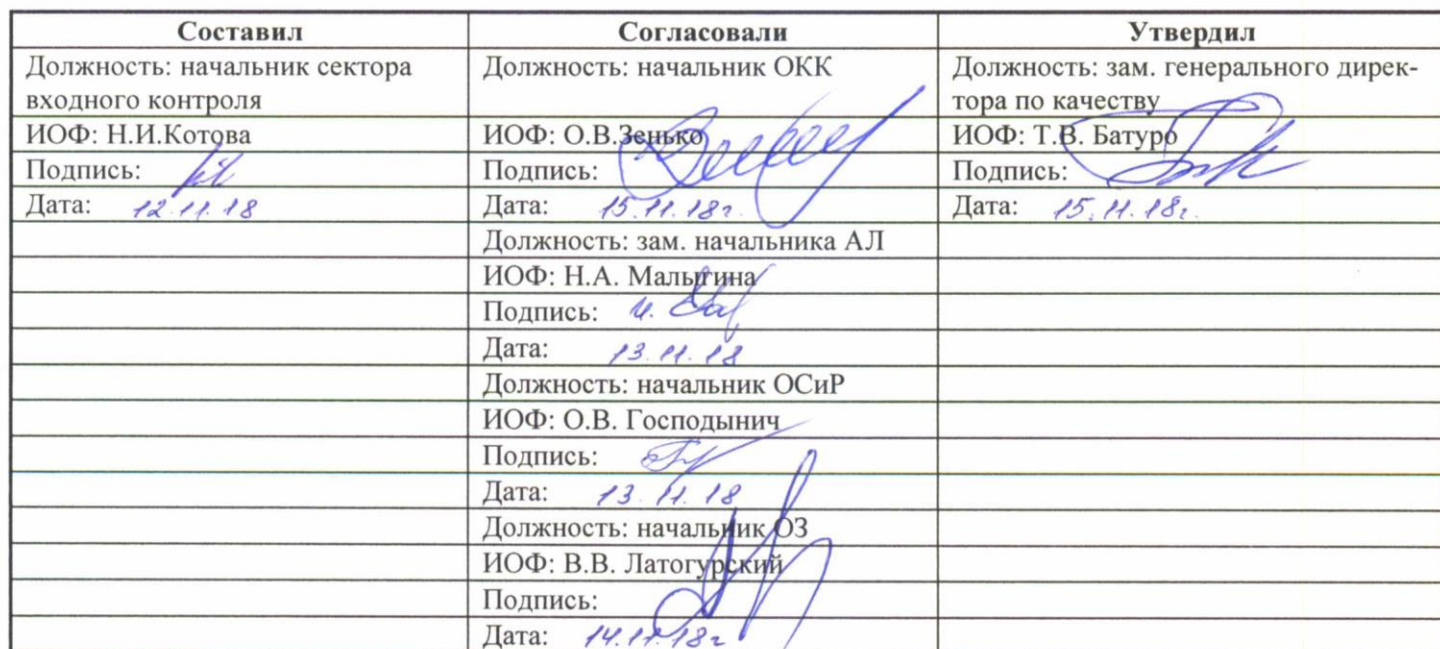 Составил Согласовали Утвердил
Должность: начальник сектора Должность: начальник ОКК Должность: зам. генерального дирек-
входного контроля тора по качеству
ИОФ: Н.И.Котова ИОФ: О.В.Зенько ИОФ: Т.В. Батуро
Подпись: Подпись: Подпись:
Дата: 12.11.18 Дата: 15.11.18г. Дата: 15.11.18г.
Должность: зам. начальника АЛ
ИОФ: Н.А. Малыгина
Подпись:
Дата: 13.11.18
Должность: начальник ОСиР
ИОФ: О.В. Господынич
Подпись:
Дата: 13.11.18
Должность: начальник ОЗ
ИОФ: В.В. Латогурский
Подпись:
Дата: 14.11.18г